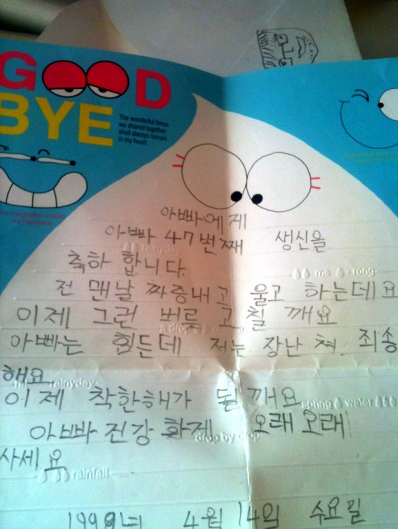 GOOD
BYE
The wonderful times
we shared together
shall always remain
in my heart.
아빠에게
아빠 47번째 생신을
축하 합니다.
전 맨날 짜증내고 울고 하는데요
이제 그런 버르 고칠 깨요
아빠는 힘든데 저는 장난 쳐 죄송
해요
rainyday
이제 착한해가 될깨요
아빠 건강 화게 오래 오래
drop by drop
사세요
rainfall
1999년 4월 14일 수요일